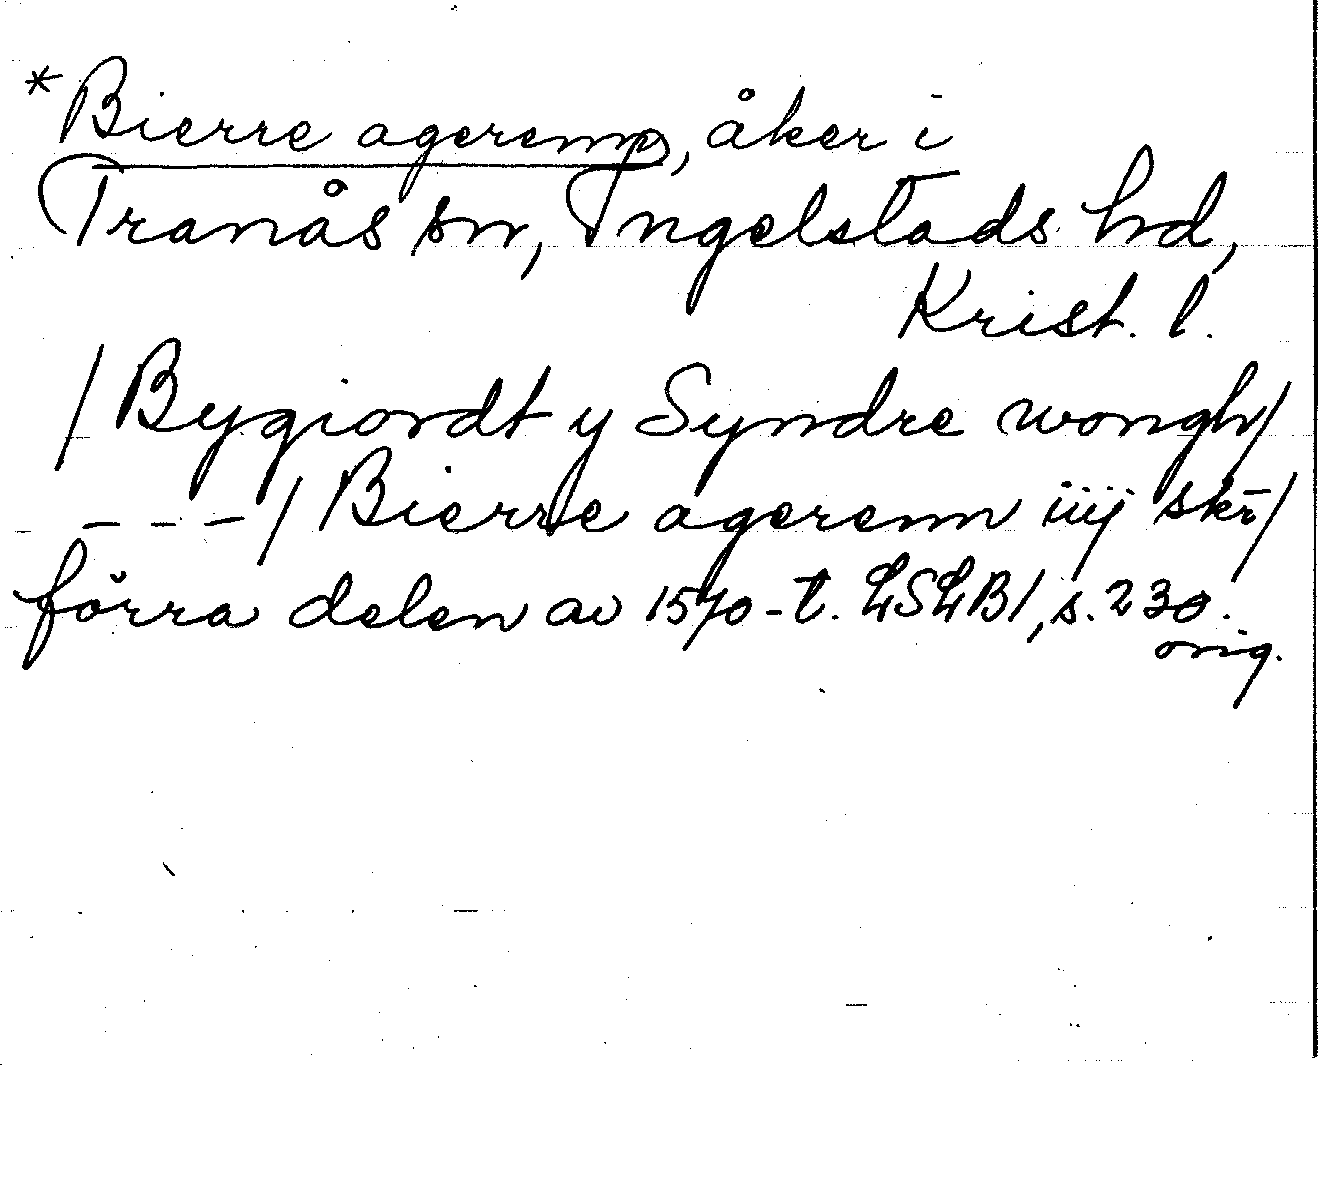 *Bierre agerenn, åker i
Tranås sn, Ingelstads hd,
Krist. l.
/Bygiordt y Syndre wongh/
---/Bierre agerenn iiij skr̄/
förra delen av 1570-t. LSLB1, s. 230.
orig.